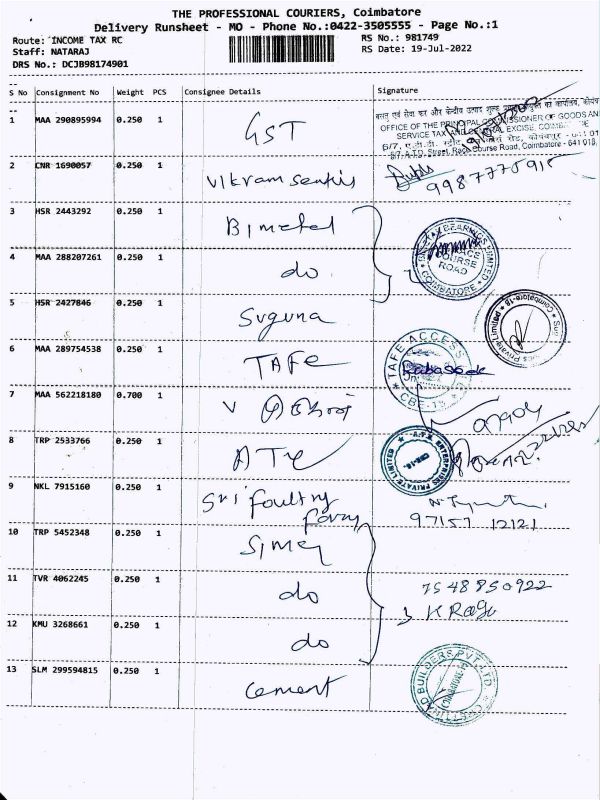 THE PROFESSIONAL COURIERS, Coimbatore
Delivery Runsheet - MO - Phone No.:0422-3505555 - Page No.:1
Route: INCOME TAX RC RS No.: 981749
Staff: NATARAJ RS Date: 19-Jul-2022
DRS No.: DCJB98174901
S No Consignment No Weight PCS Consignee Details Signature
1 MAA 290895994 0.250 1 GST
OFFICE OF THE PRINCIPAL COMMISSIONER OF GOODS AND
SERVICE TAX AND CENTRAL EXCISE, COIMBATORE
6/7, A.T.D. Street, Race Course Road, Coimbatore - 641 018.
2 CNR 1690057 0.250 1 Vikram sentis
3 HSR 2443292 0.250 1 Bimetal
BEARINGS LIMITED
RACE
COURSE
ROAD
COIMBATORE
4 MAA 288207261 0.250 1 do
5 HSR 2427846 0.250 1 Suguna
Private Limited
Coimbatore-18
6 MAA 289754538 0.250 1 TAFE
TAFE ACCESS
CBE-18
7 MAA 562218180 0.700 1 V
8 TRP 2533766 0.250 1
ENTERPRISES PRIVATE LIMITED
CBE-18.
9 NKL 7915160 0.250 1 Sri Poultry
farm
97157 12121
10 TRP 5452348 0.250 1
11 TVR 4062245 0.250 1 do
7548850922
K Ragu
12 KMU 3268661 0.250 1 do
13 SLM 299594815 0.250 1 cement
BUILDERS PVT LTD